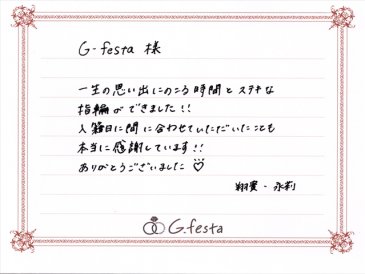 G-festa 様
一生の思い出にのこる時間とステキな
指輪ができました!!
入籍日に間に合わせていただいたことも
本当に感謝しています!!
ありがとうございました♡
翔貴・永莉
G.festa